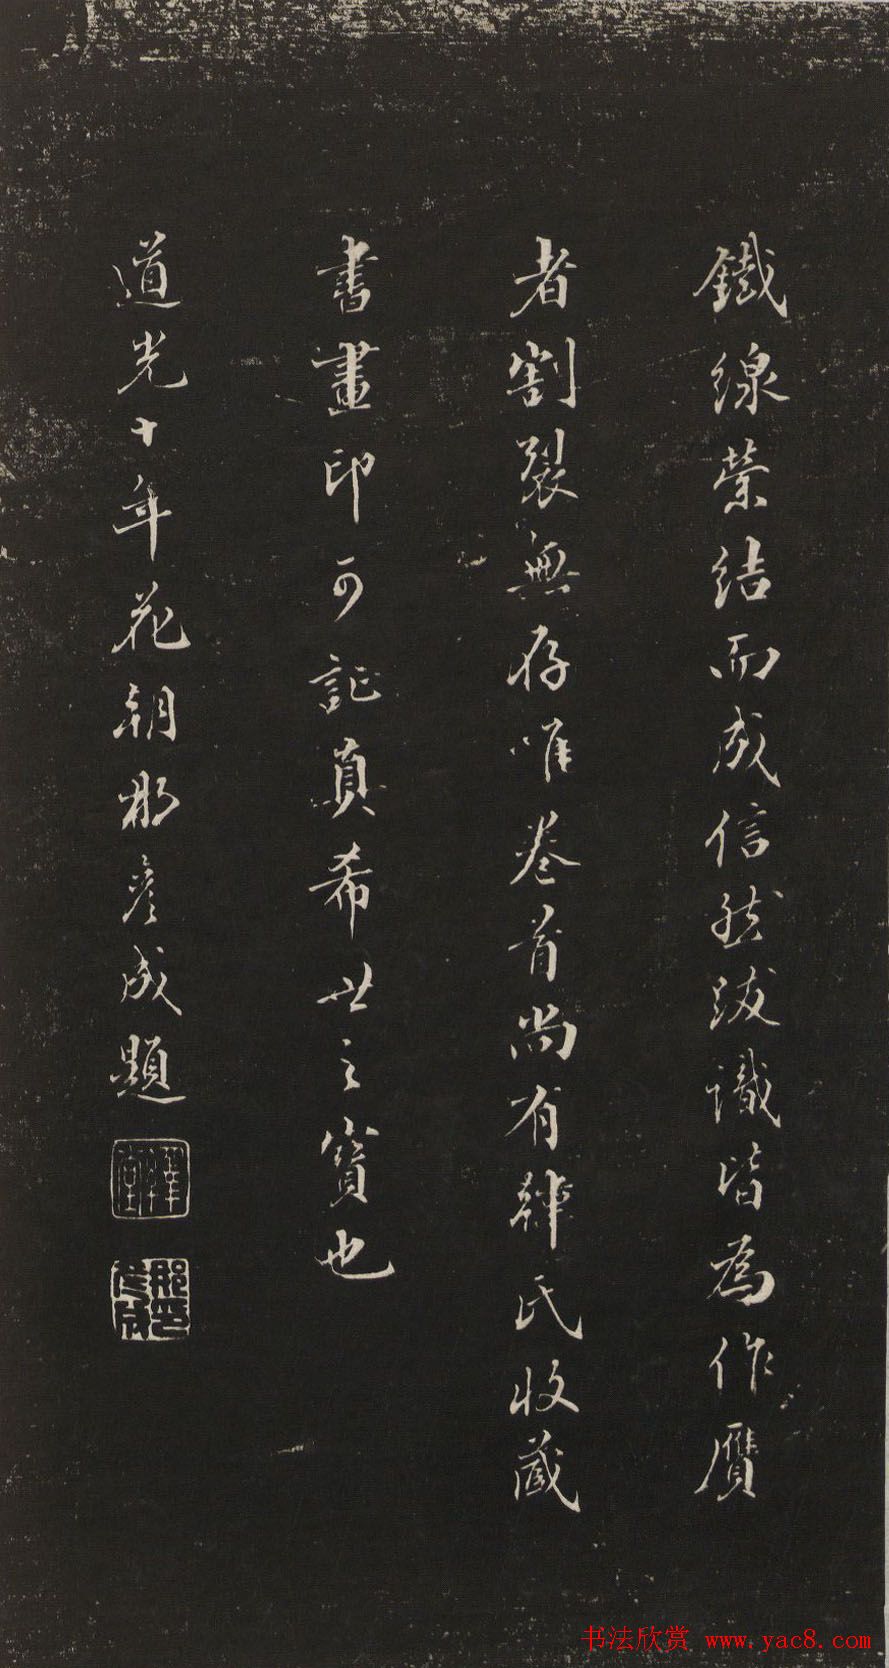 鐵線縈結而成信然跋識皆為作贋
者割裂無存唯卷首尚有韓氏收藏
書畫印可証真希世之寶也
道光十年花朝那彥成題
繹堂
那彥成印
书法欣赏 www.yac8.com